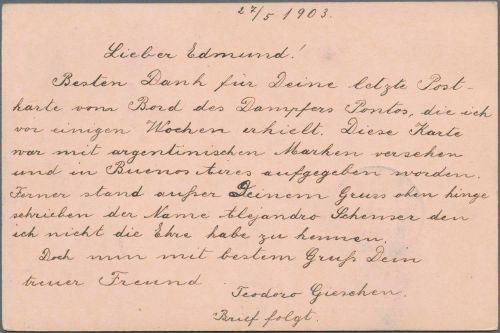 27/5 1903.
Lieber Edmund!
Besten Dank für Deine letzte Post-
karte vom Bord des Dampfers Pontos, die ich
vor einigen Wochen erhielt. Diese Karte
war mit argentinischen Marken versehen
und in Buenos Aires aufgegeben worden.
Ferner stand außer Deinem Gruss oben hinge
schrieben der Name Alejandro Schenser den
ich nicht die Ehre habe zu kennen.
Doch nun mit bestem Gruß Dein
treuer Freund
Teodoro Gieschen.
Brief folgt.